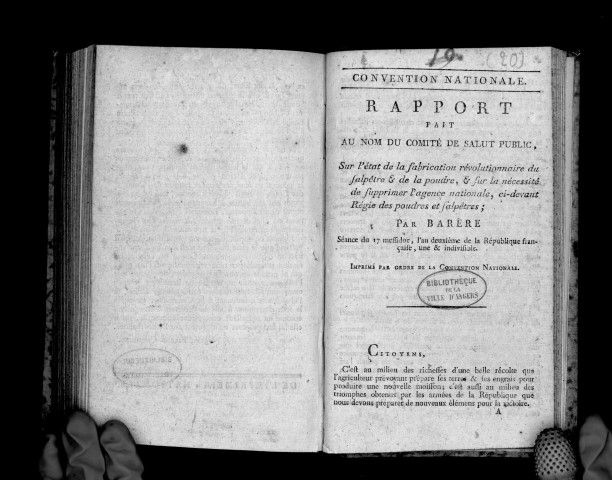 19 (20)
CONVENTION NATIONALE.
RAPPORT
FAIT
AU NOM DU COMITÉ DE SALUT PUBLIC,
Sur l'état de la fabrication révolutionnaire du
salpêtre & de la poudre, & sur la nécessité
de supprimer l'agence nationale, ci-devant
Régie des poudres et salpêtres ;
PAR BARÈRE
Séance du 17 messidor, l'an deuxième de la République fran-
çaise, une & indivisible.
IMPRIMÉ PAR ORDRE DE LA CONVENTION NATIONALE.
BIBLIOTHÈQUE
DE LA
VILLE D'ANGERS
CITOYENS,
C'est au milieu des richesses d'une belle récolte que
l'agriculteur prévoyant prépare ses terres & ses engrais pour
produire une nouvelle moisson; c'est aussi au milieu des
triomphes obtenus par les armées de la République que
nous devons préparer de nouveaux élémens pour la victoire.
A